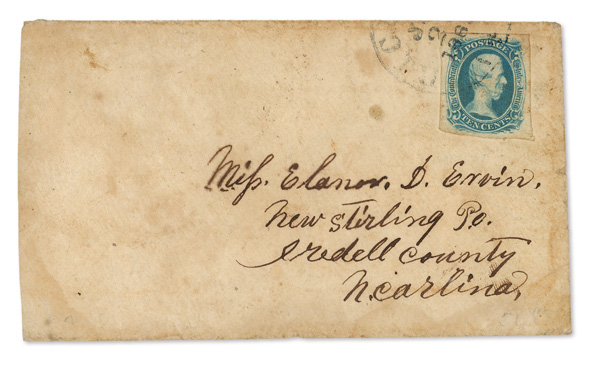 POSTAGE
The Confederate States of America
TEN CENTS
Miss. Elanor. D. Ervin.
New stirling Po.
Iredell county
N. carlina,